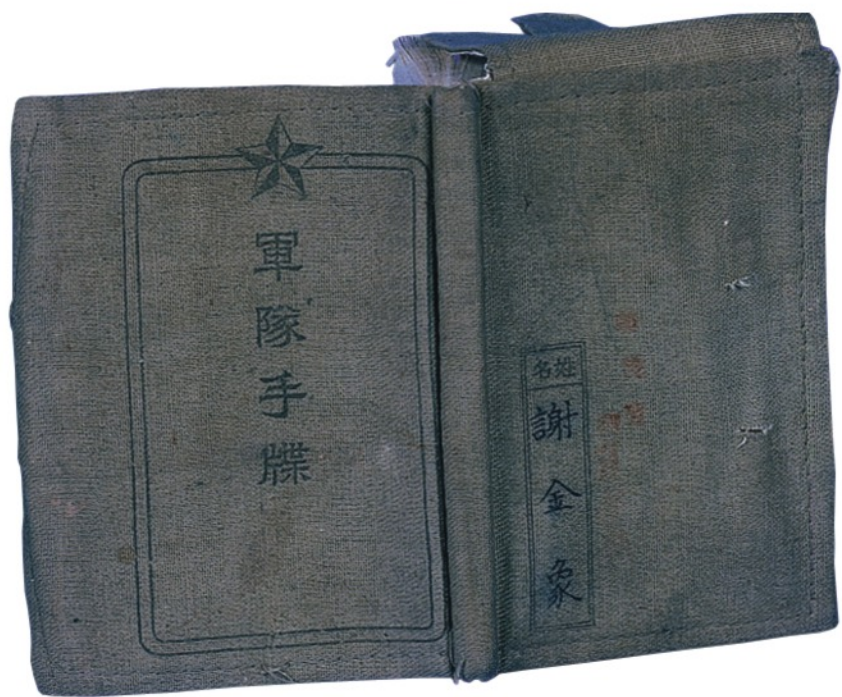 軍隊手牒
姓名
謝金象